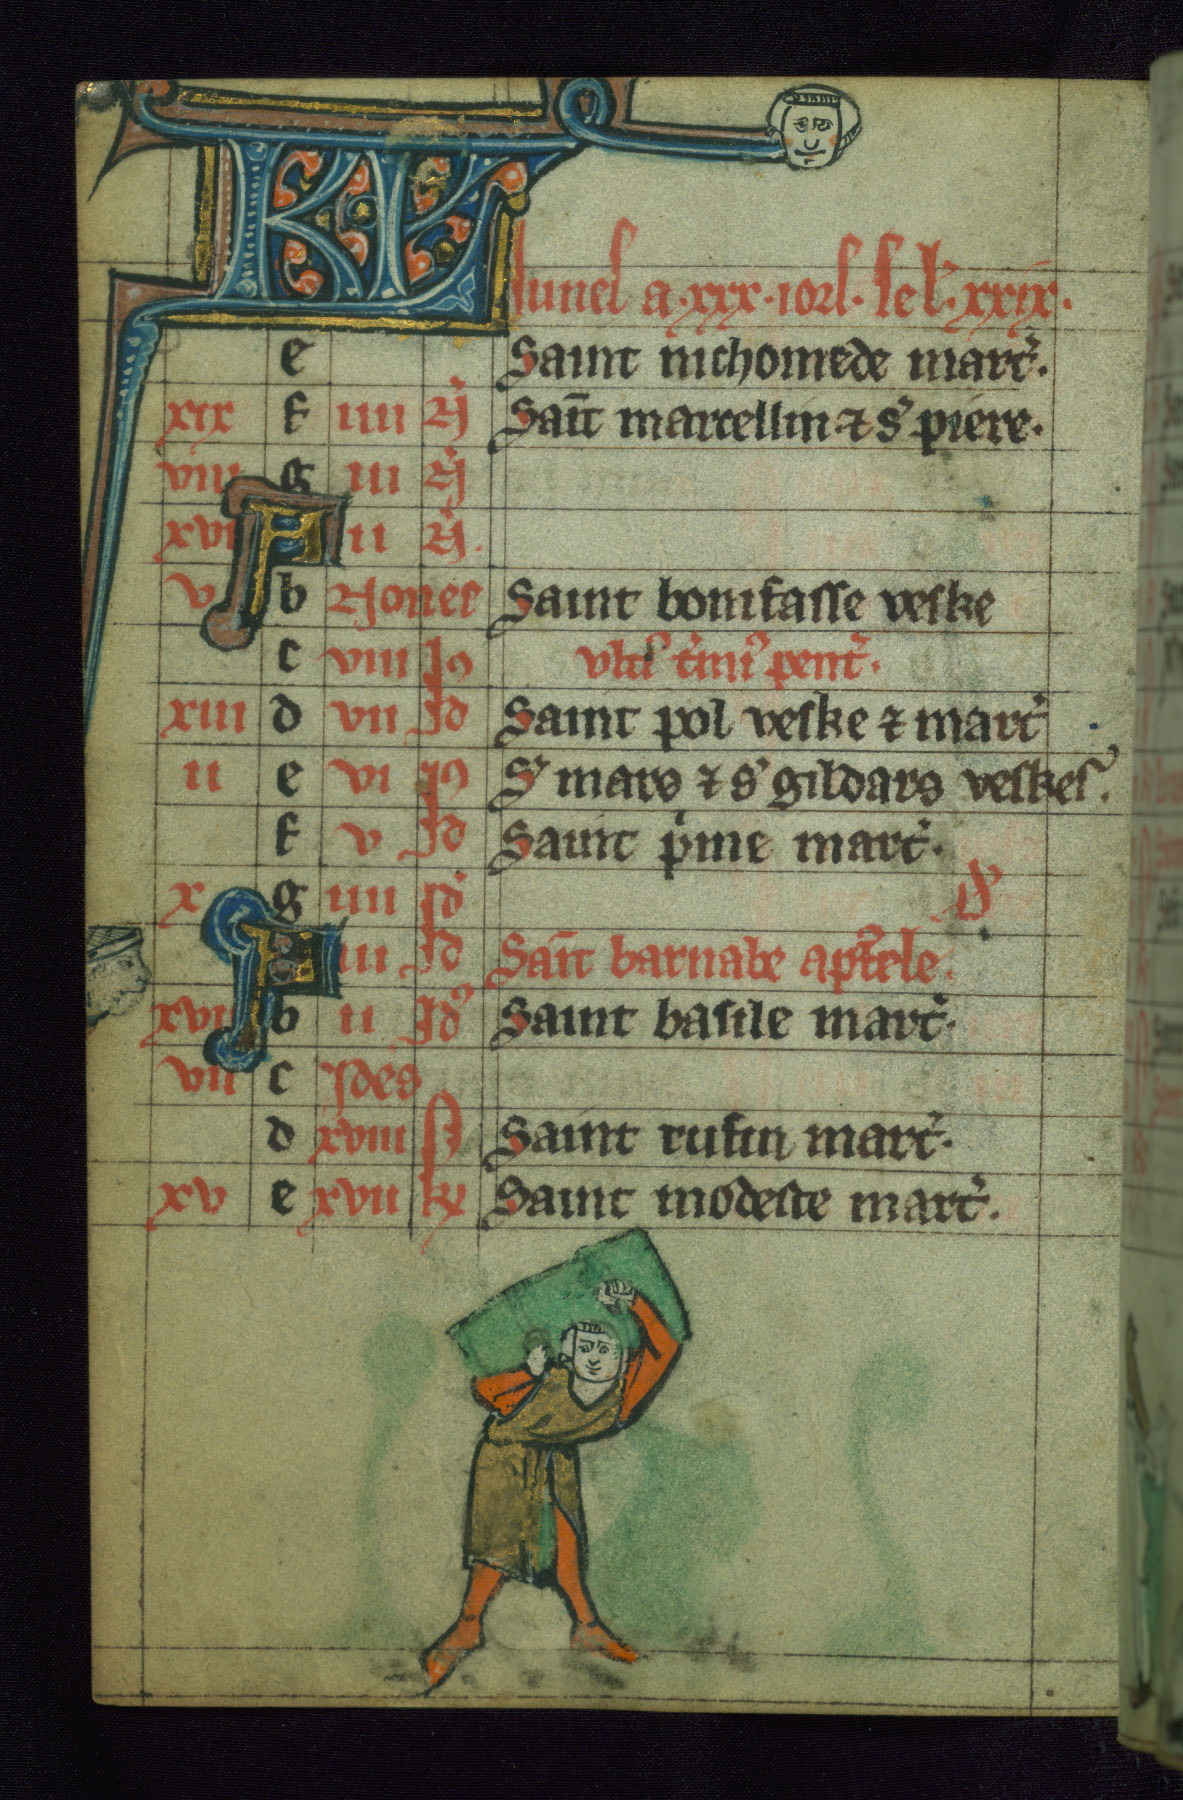 KL
Iunel a .xxx. iorſ. ſe lꝰ. xxix.
e Saint nichomede marꞇ̉.
xix f iiii N̉ Saīt marcellin ⁊ s̉ piere.
viii g iii N̉
xvi A ii N̉.
v b Nones Saint bonifasse veske
c viii Id vltī tīmī pent̉.
xiii d vii Id Saint pol veske ⁊ mart̉
ii e vi Id S̉ mars ⁊ s̉ gildars veskeſ.
f v Id Saint p̉me mart̉.
x g iiii Id
A iii Id Saīt barnabe apr̄tele.
xviii b ii Id Saint basile mart̉.
vii c Ides
d xviii kl Saint rufin mart̉.
xv e xvii kl Saint modeste mart̉.